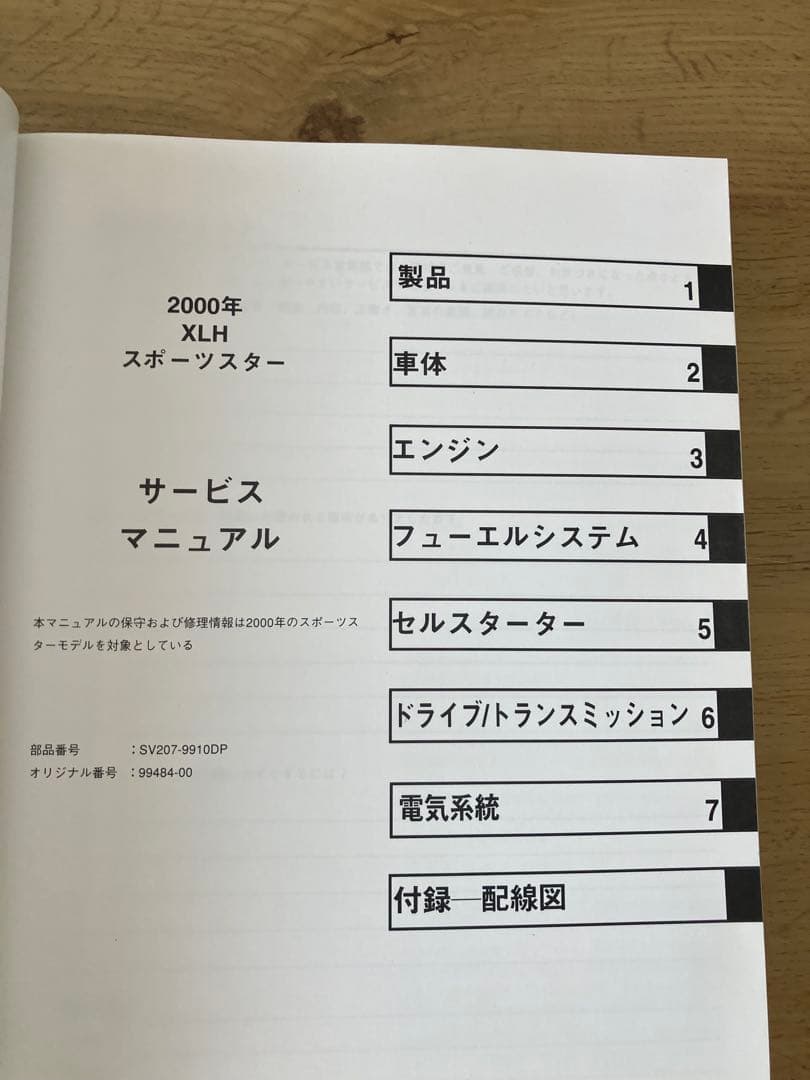 2000年
XLH
スポーツスター
サービス
マニュアル
本マニュアルの保守および修理情報は2000年のスポーツス
ターモデルを対象としている
部品番号 : SV207-9910DP
オリジナル番号 : 99484-00
製品 1
車体 2
エンジン 3
フューエルシステム 4
セルスターター 5
ドライブ/トランスミッション 6
電気系統 7
付録―配線図